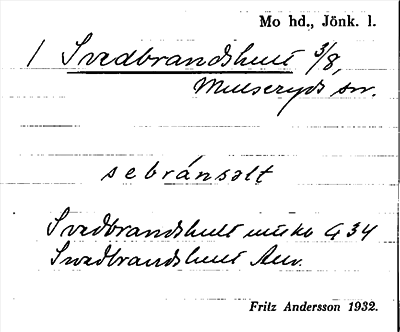 Mo hd., Jönk. l.
1 Svedbrandshult 3/8,
Mulseryds sn.
sebránsәlt
Svedbrandshult G 34
Swedbrandshult
Fritz Andersson 1932.